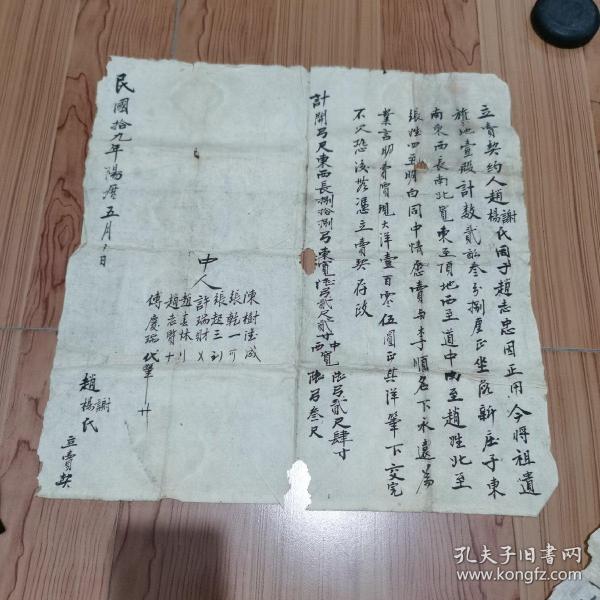 立賣契約人趙謝楊氏同子趙志忠因正用今將祖遺
旗地壹段計數貳畝叁分捌厘正坐落新庄子東
南東西長南北寬東至頂地西至道中南至趙姓北至
張姓四至明白同中情愿賣與李順名下永遠為
業言明賣價現大洋壹百零伍圓正其洋筆下交完
不欠恐後無憑立賣契存政
計開弓尺東西長捌拾捌弓東寬陸弓貳尺貳寸中寬陸弓貳尺肆寸西陸弓叁尺
中人
陳樹陸
張乾一
張超三
許瑞財 X
趙春林
趙志賢 十
傅慶瑞 代筆 十
趙謝楊氏 立賣契
民國拾九年陽曆五月 日
孔夫子旧书网
www.kongfz.com